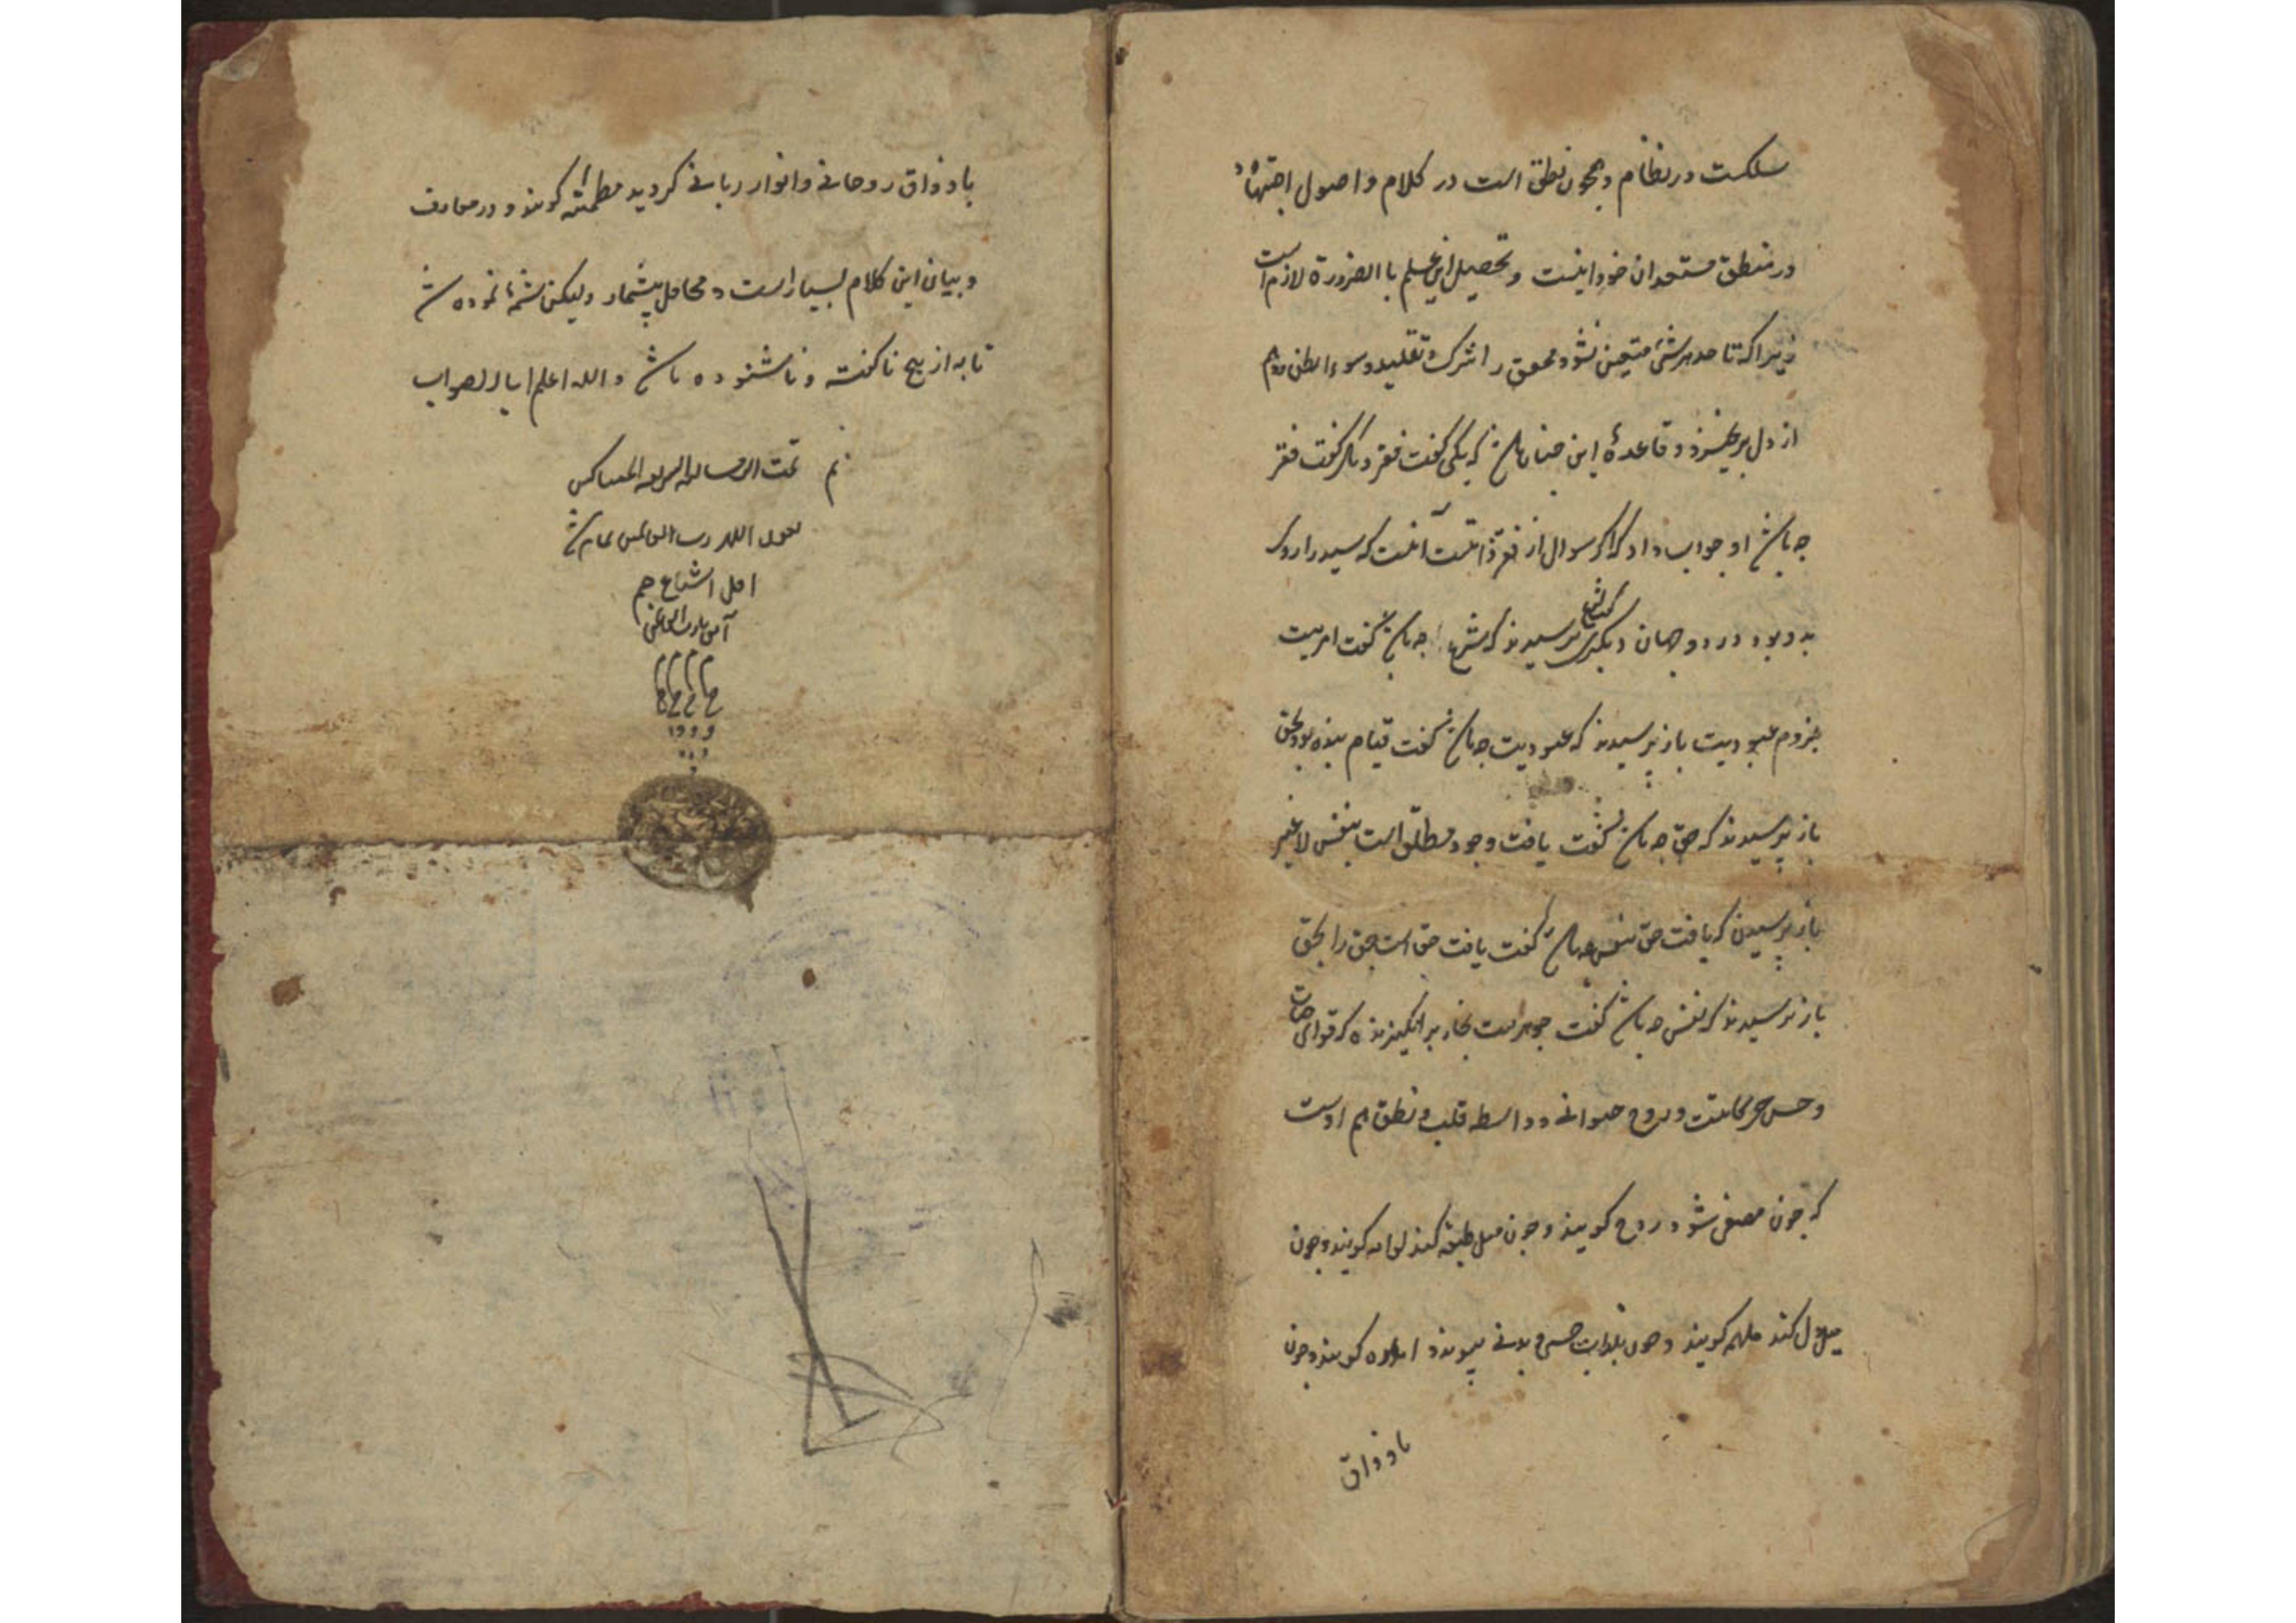 سلکست در نظام و همچون نطق است در کلام و اصول اجتهاد
در منطق مستعدان خود اینست و تحصیل این علم با الضرورة لازم است
زیرا که تا حد هر شئ متعین نشود محقق را شرک و تقلید و سوء الظن و وهم
از دل بر نخیزد و قاعدهٔ این چنان باشد که یکی گفت فقر دیگر گفت فقر
چه باشد او جواب داد که اگر سوال از فقر ذاتست آنست که سیه رو
بود در دو جهان دیگری پرسیدند که چه باشد گفت امریست
جزوم عبودیت باز پرسیدند که عبودیت چه باشد گفت قیام بنده بود بحق
باز پرسیدند که حق چه باشد گفت یافت وجود مطلق است بنفس لا غیر
باز پرسیدن که یافت حق بنفس چه باشد گفت یافت حق است حق را بحق
باز پرسیدند که نفس چه باشد گفت جوهریست بخار بر انگیزنده که قوای حیات
و حس حرکاتست و روح حیوانی و واسطه قلب و نطق هم اوست
که چون مصفی شود روح گویند و چون میل طبیعه کند لوامه گویند و چون
میل دل کند ملهمه گویند و چون بلذات حسی و بدنی پیوندد اماره گویند و چون
باذواق
باذواق روحانی و انوار ربانی گردید مطمئنه گویند و در معارف
و بیان این کلام بسیار است و محافل بیشمار ولیکن شمهٔ نموده شد
تا به از هیچ ناگفته و ناشنوده باشد و الله اعلم با الصواب
تم تمت الرساله الشریفه
بعون الله رب العالمین تمام شد
آمین یا رب العالمین